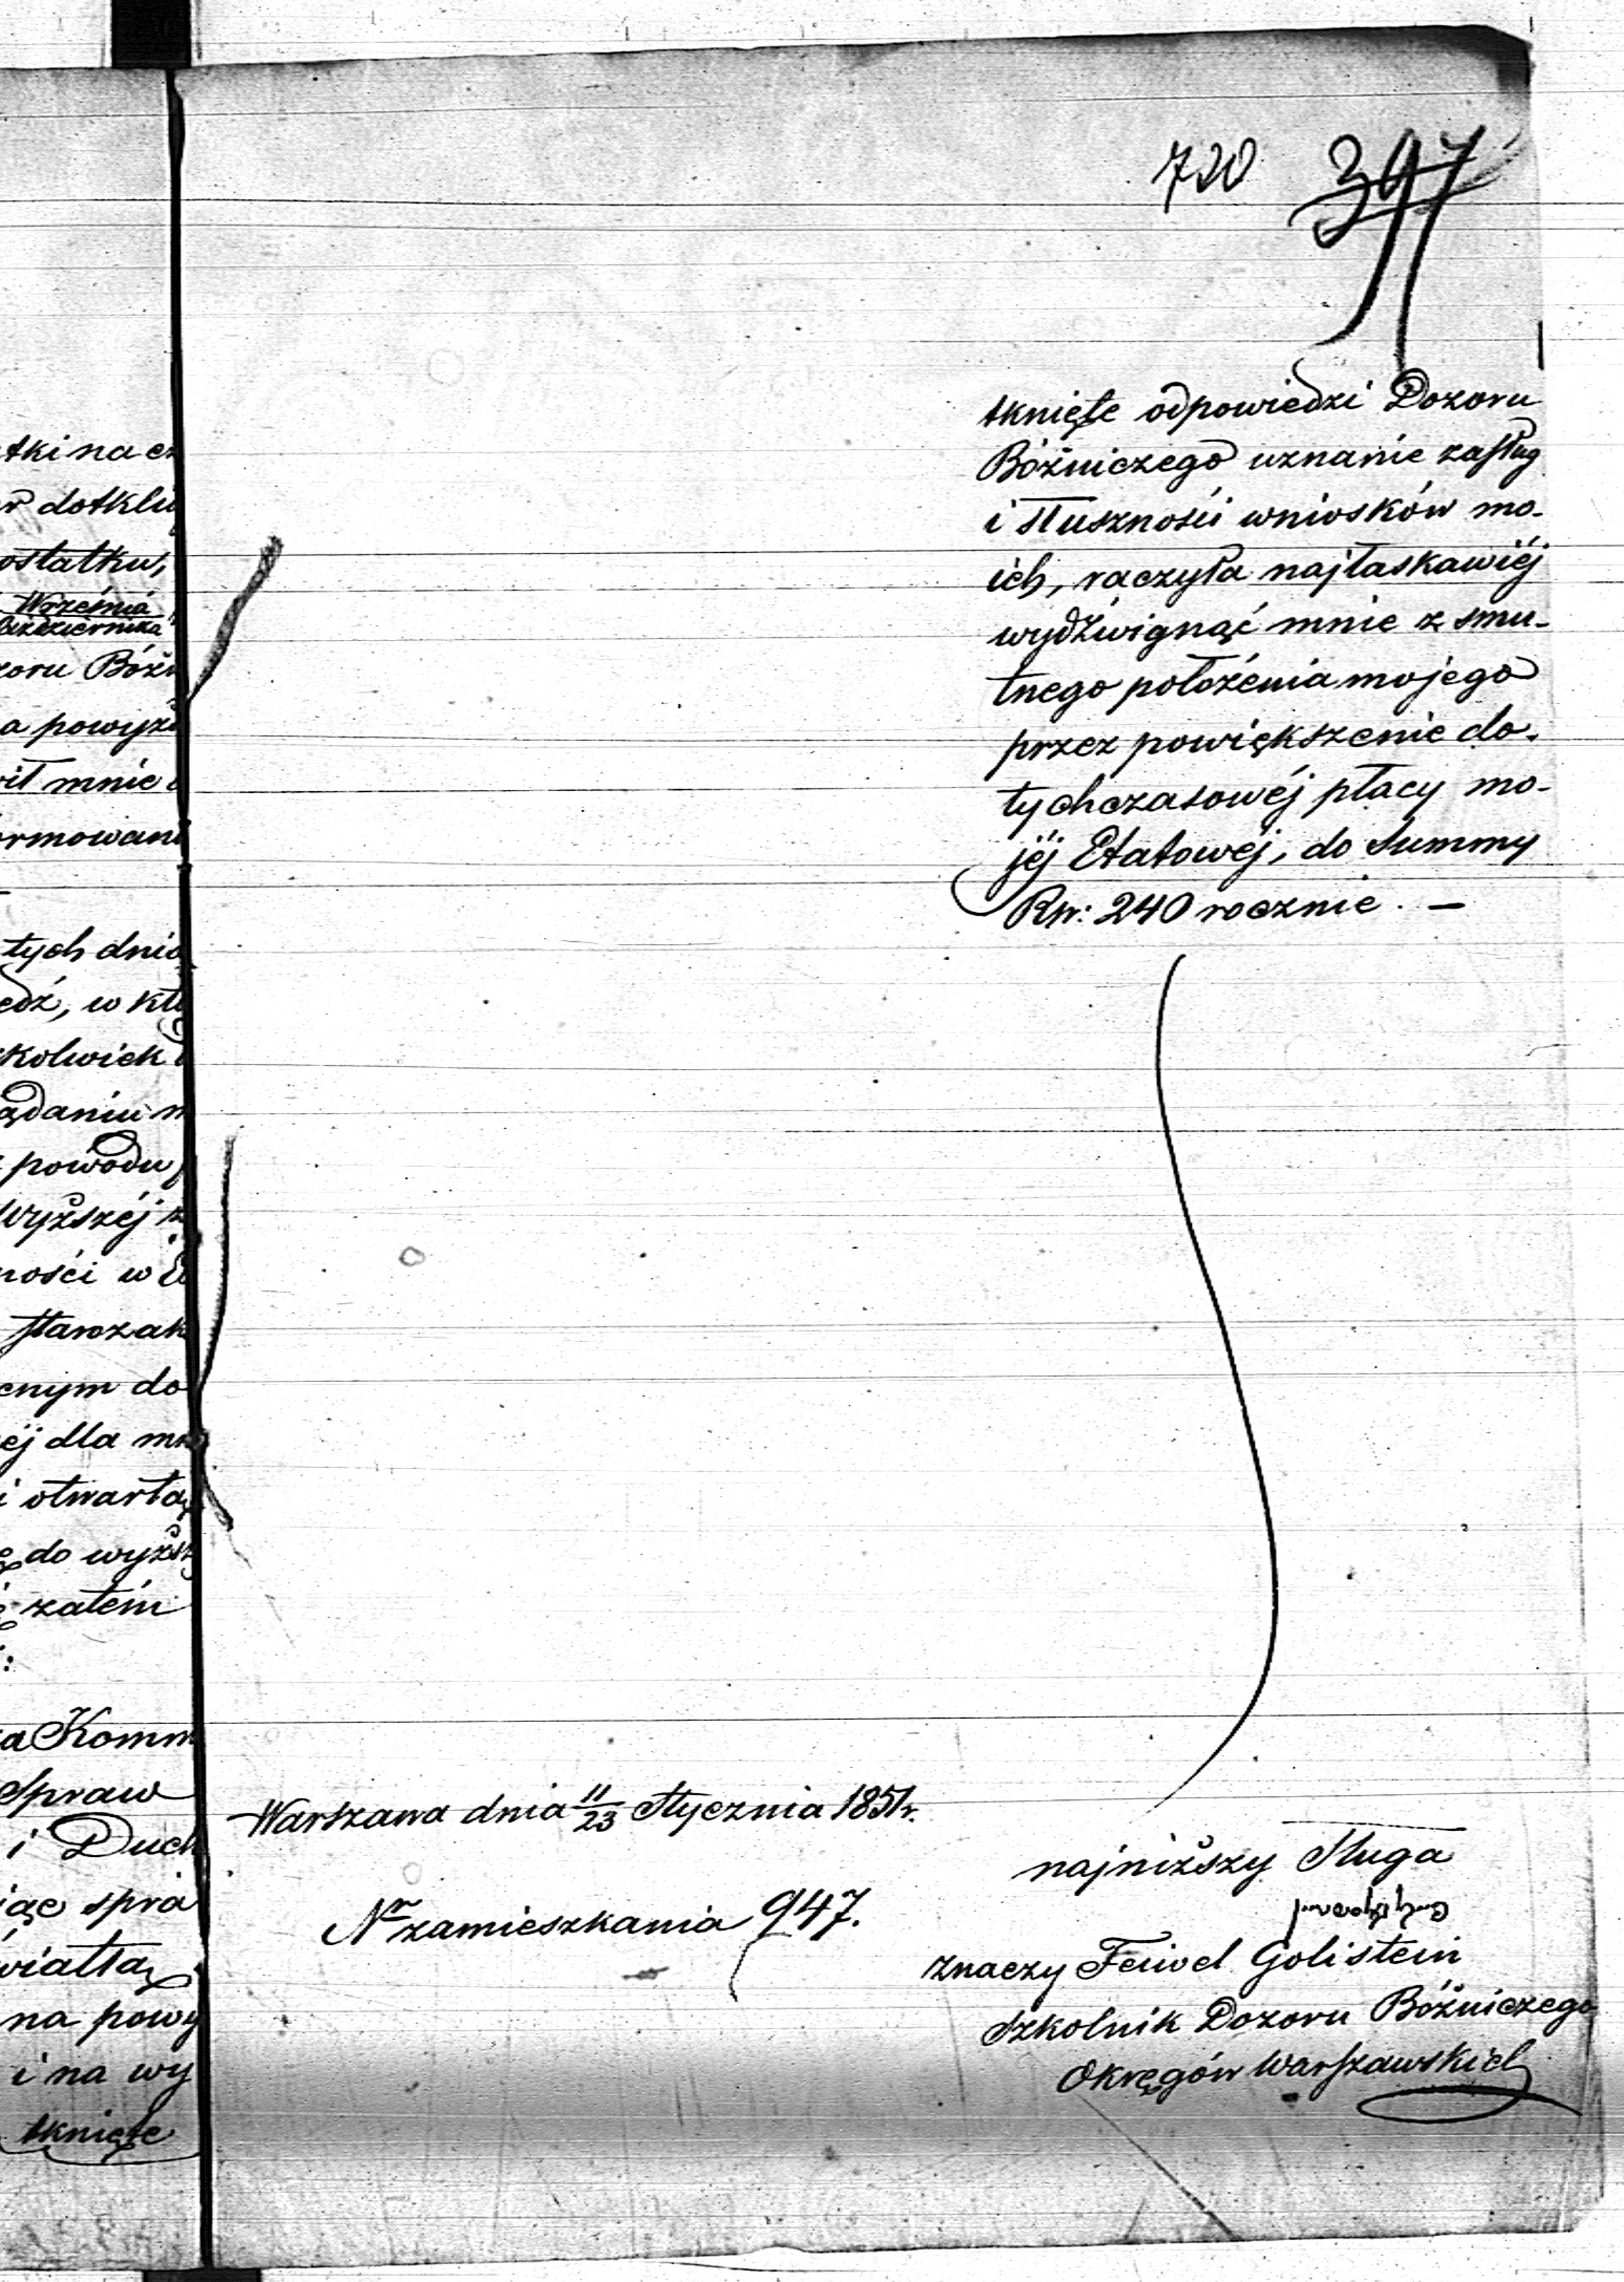 720 397
tknięte odpowiedzi Dozoru
Bóżniczego uznanie zasług
i słuszności wniosków mo-
ich, raczyła najłaskawiéj
wydźwignąć mnie z smu-
tnego położenia mojego
przez powiększenie do-
tychczasowéj płacy mo-
jéj Etatowéj, do Summy
Rsr: 240 rocznie. —
Warszawa dnia 11/23 Stycznia 1851 r.
Nr zamieszkania 947.
najniższy Sługa
znaczy Feiwel Golistein
Szkolnik Dozoru Bóżniczego
Okręgów Warszawskich
tki na
dotkli
ostatku,
Września
Października
zoru Bóżn
a powyż
ił mnie
ormowani
tych dni
edź, w kt
kolwiek
ądaniu m
powodu
wyższéj
ności w
starozak
cnym do
éj dla mn
i otwartą
do wyżs
zatém
:
a Komm
Spraw
i Duch
iąc spra
wiatłą
na powy
i na wy
tknięte